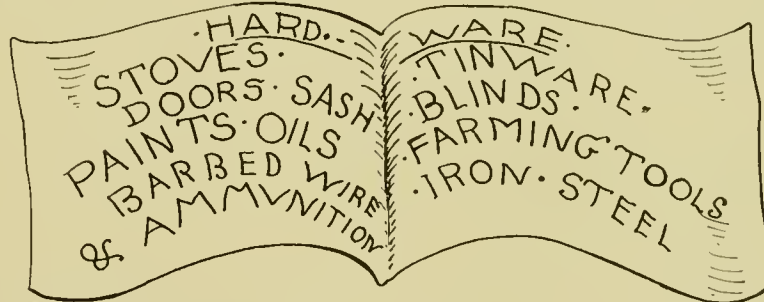 ·HARD·
STOVES·
DOORS· SASH
PAINTS· OILS
BARBED WIRE
& AMMVNITION
WARE·
·TINWARE·
·BLINDS·
·FARMING TOOLS
·IRON· STEEL